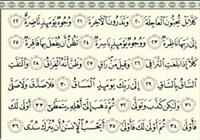 كَلَّا بَلْ تُحِبُّونَ ٱلْعَاجِلَةَ ٢٠ وَتَذَرُونَ ٱلْآخِرَةَ ٢١ وُجُوهٌ يَوْمَئِذٍ نَّاضِرَةٌ ٢٢
إِلَىٰ رَبِّهَا نَاظِرَةٌ ٢٣ وَوُجُوهٌ يَوْمَئِذٍۭ بَاسِرَةٌ ٢٤ تَظُنُّ أَن يُفْعَلَ بِهَا فَاقِرَةٌ
٢٥ كَلَّآ إِذَا بَلَغَتِ ٱلتَّرَاقِىَ ٢٦ وَقِيلَ مَنْ ۜ رَاقٍ ٢٧ وَظَنَّ أَنَّهُ ٱلْفِرَاقُ ٢٨ وَٱلْتَفَّتِ
ٱلسَّاقُ بِٱلسَّاقِ ٢٩ إِلَىٰ رَبِّكَ يَوْمَئِذٍ ٱلْمَسَاقُ ٣٠ فَلَا صَدَّقَ وَلَا صَلَّىٰ
٣١ وَلَٰكِن كَذَّبَ وَتَوَلَّىٰ ٣٢ ثُمَّ ذَهَبَ إِلَىٰٓ أَهْلِهِۦ يَتَمَطَّىٰٓ ٣٣ أَوْلَىٰ لَكَ
فَأَوْلَىٰ ٣٤ ثُمَّ أَوْلَىٰ لَكَ فَأَوْلَىٰٓ ٣٥ أَيَحْسَبُ ٱلْإِنسَٰنُ أَن يُتْرَكَ سُدًى